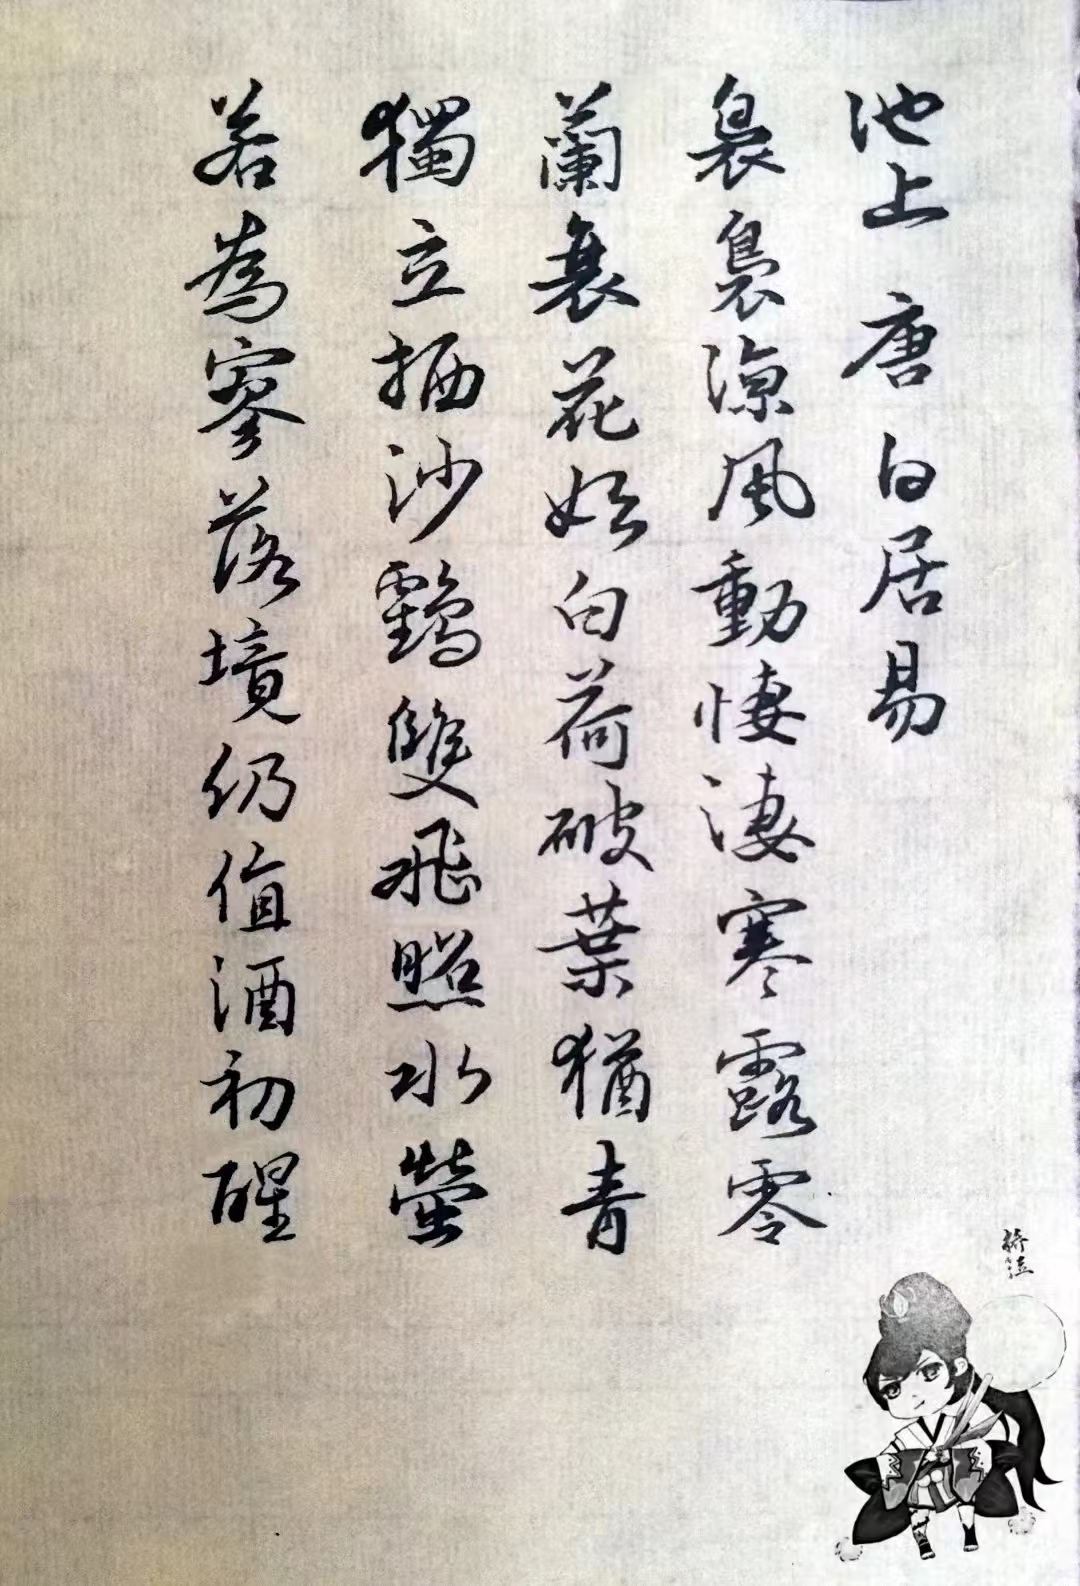 池上 唐 白居易
裊裊涼風動悽淒寒露零
蘭衰花始白荷破葉猶青
獨立栖沙鶴雙飛照水螢
若為寥落境仍值酒初醒